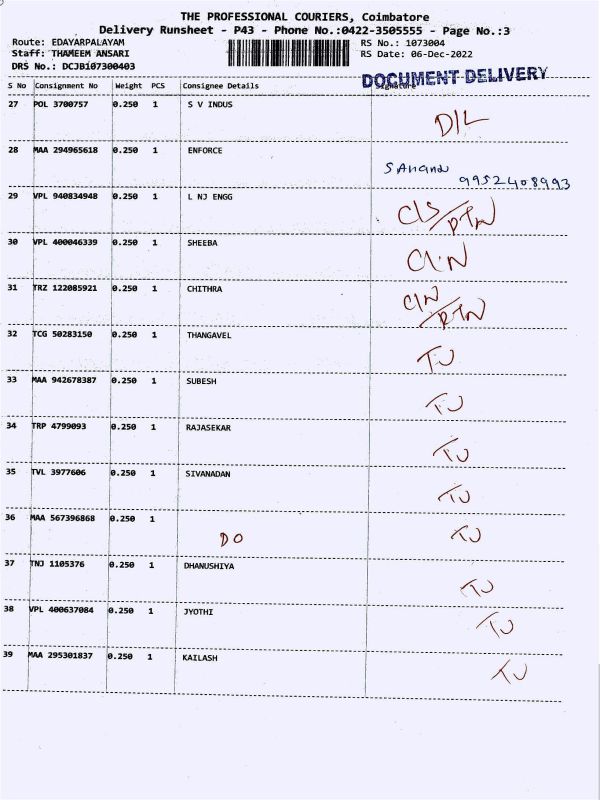 THE PROFESSIONAL COURIERS, Coimbatore
Delivery Runsheet - P43 - Phone No.:0422-3505555 - Page No.:3
Route: EDAYARPALAYAM RS No.: 1073004
Staff: THAMEEM ANSARI RS Date: 06-Dec-2022
DRS No.: DCJB107300403
DOCUMENT DELIVERY
S No Consignment No Weight PCS Consignee Details Signature
27 POL 3700757 0.250 1 S V INDUS D/L
28 MAA 294965618 0.250 1 ENFORCE S Anand
9952408993
29 VPL 940834948 0.250 1 L NJ ENGG CLS/RTN
30 VPL 400046339 0.250 1 SHEEBA CLN
31 TRZ 122085921 0.250 1 CHITHRA CIN/RTN
32 TCG 50283150 0.250 1 THANGAVEL TU
33 MAA 942678387 0.250 1 SUBESH TU
34 TRP 4799093 0.250 1 RAJASEKAR TU
35 TVL 3977606 0.250 1 SIVANADAN TU
36 MAA 567396868 0.250 1 DO TU
37 TNJ 1105376 0.250 1 DHANUSHIYA TU
38 VPL 400637084 0.250 1 JYOTHI TU
39 MAA 295301837 0.250 1 KAILASH TU